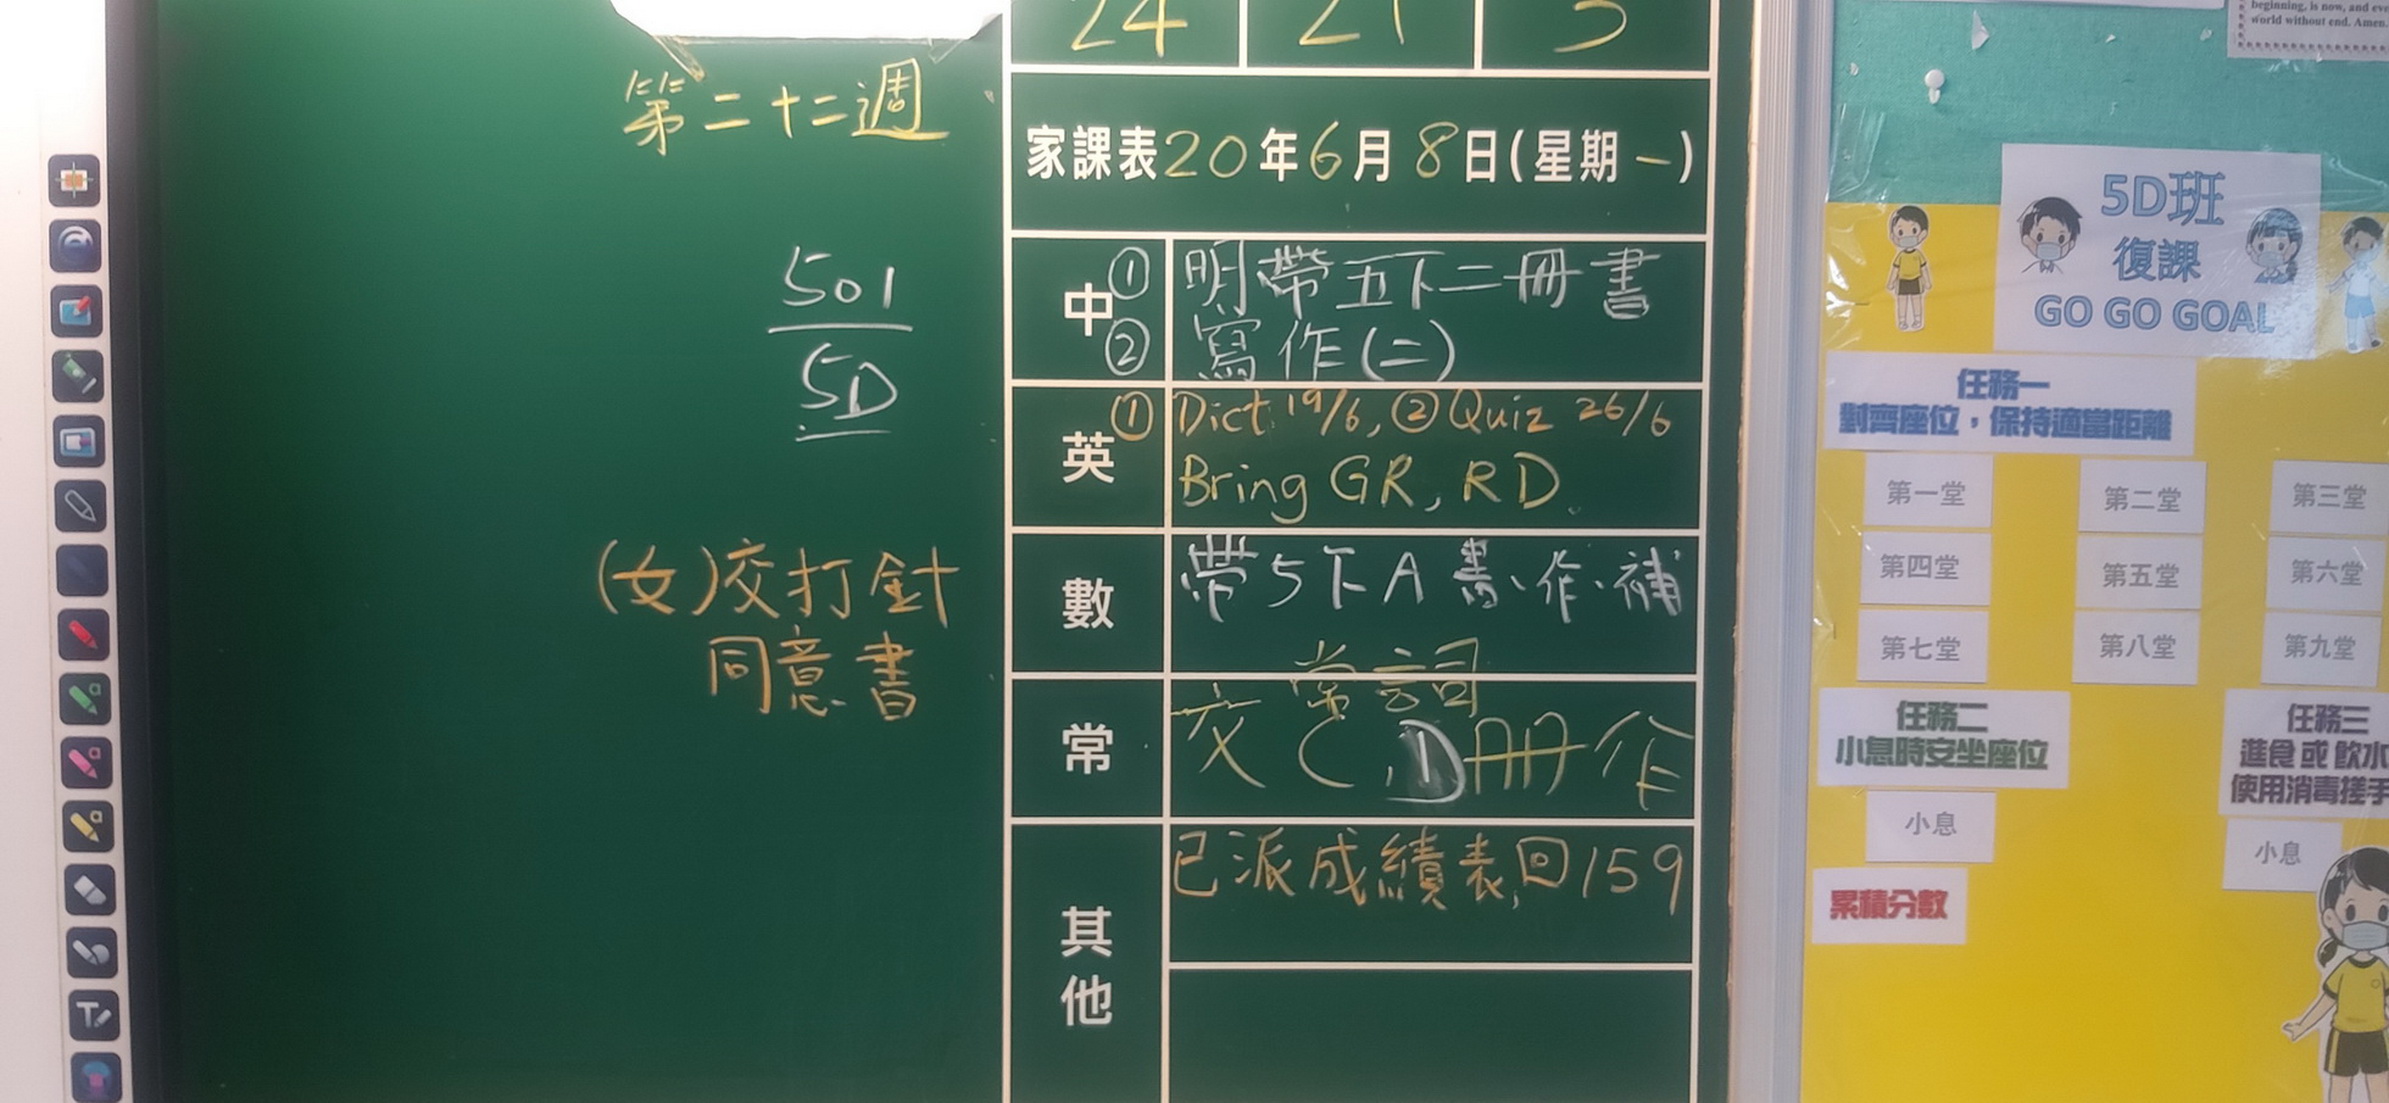 24 21 3
第二十二週
家課表20年6月8日(星期一)
501
5D
中
① 明帶五下二冊書
② 寫作(二)
英
① Dict 19/6, ② Quiz 26/6
Bring GR, RD.
數
帶5下A書、作、補
(女)交打針
同意書
常
常詞
交C, 冊作
其他
已派成績表,回159
beginning, is now, and
world without end. Amen.
5D班
復課
GO GO GOAL
任務一
對齊座位,保持適當距離
第一堂 第二堂 第三堂
第四堂 第五堂 第六堂
第七堂 第八堂 第九堂
任務二
小息時安坐座位
小息
任務三
進食 或 飲水
使用消毒搓手
小息
累積分數